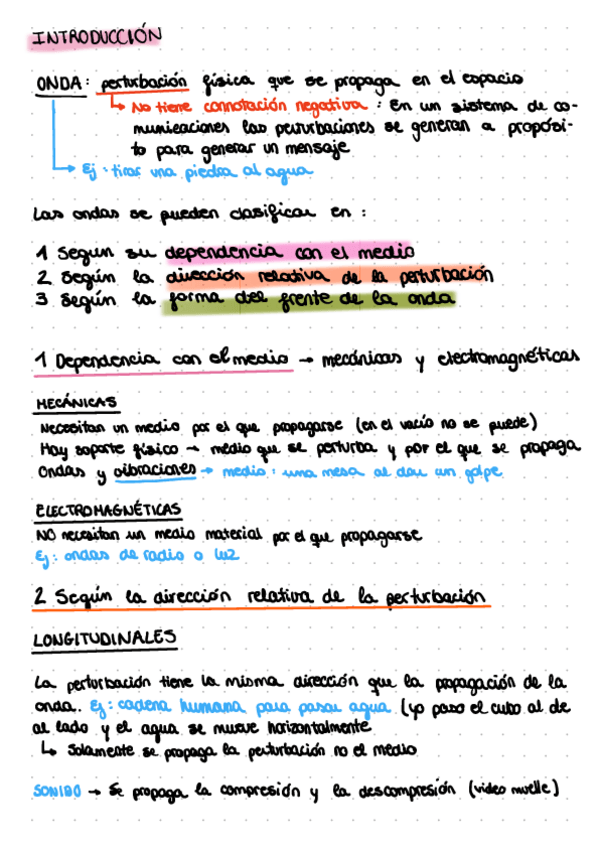 INTRODUCCIÓN
ONDA: perturbación física que se propaga en el espacio
↳ No tiene connotación negativa: En un sistema de co-
municaciones las perturbaciones se generan a propósi-
to para generar un mensaje
→ Ej: tirar una piedra al agua
Las ondas se pueden clasificar en:
1 Segun su dependencia con el medio
2 Según la dirección relativa de la perturbación
3 Según la forma del frente de la onda
1 Dependencia con el medio → mecánicas y electromagnéticas
MECÁNICAS
Necesitan un medio por el que propagarse (en el vacío no se puede)
Hay soporte físico → medio que se perturba y por el que se propaga
Ondas y vibraciones → medio: una mesa al dar un golpe
ELECTROMAGNÉTICAS
NO necesitan un medio material por el que propagarse
Ej: ondas de radio o luz
2 Según la dirección relativa de la perturbación
LONGITUDINALES
La perturbación tiene la misma dirección que la propagación de la
onda. Ej: cadena humana para pasar agua (yo paso el cubo al de
al lado y el agua se mueve horizontalmente
↳ Solamente se propaga la perturbación no el medio
SONIDO → Se propaga la compresión y la descompresión (video muelle)